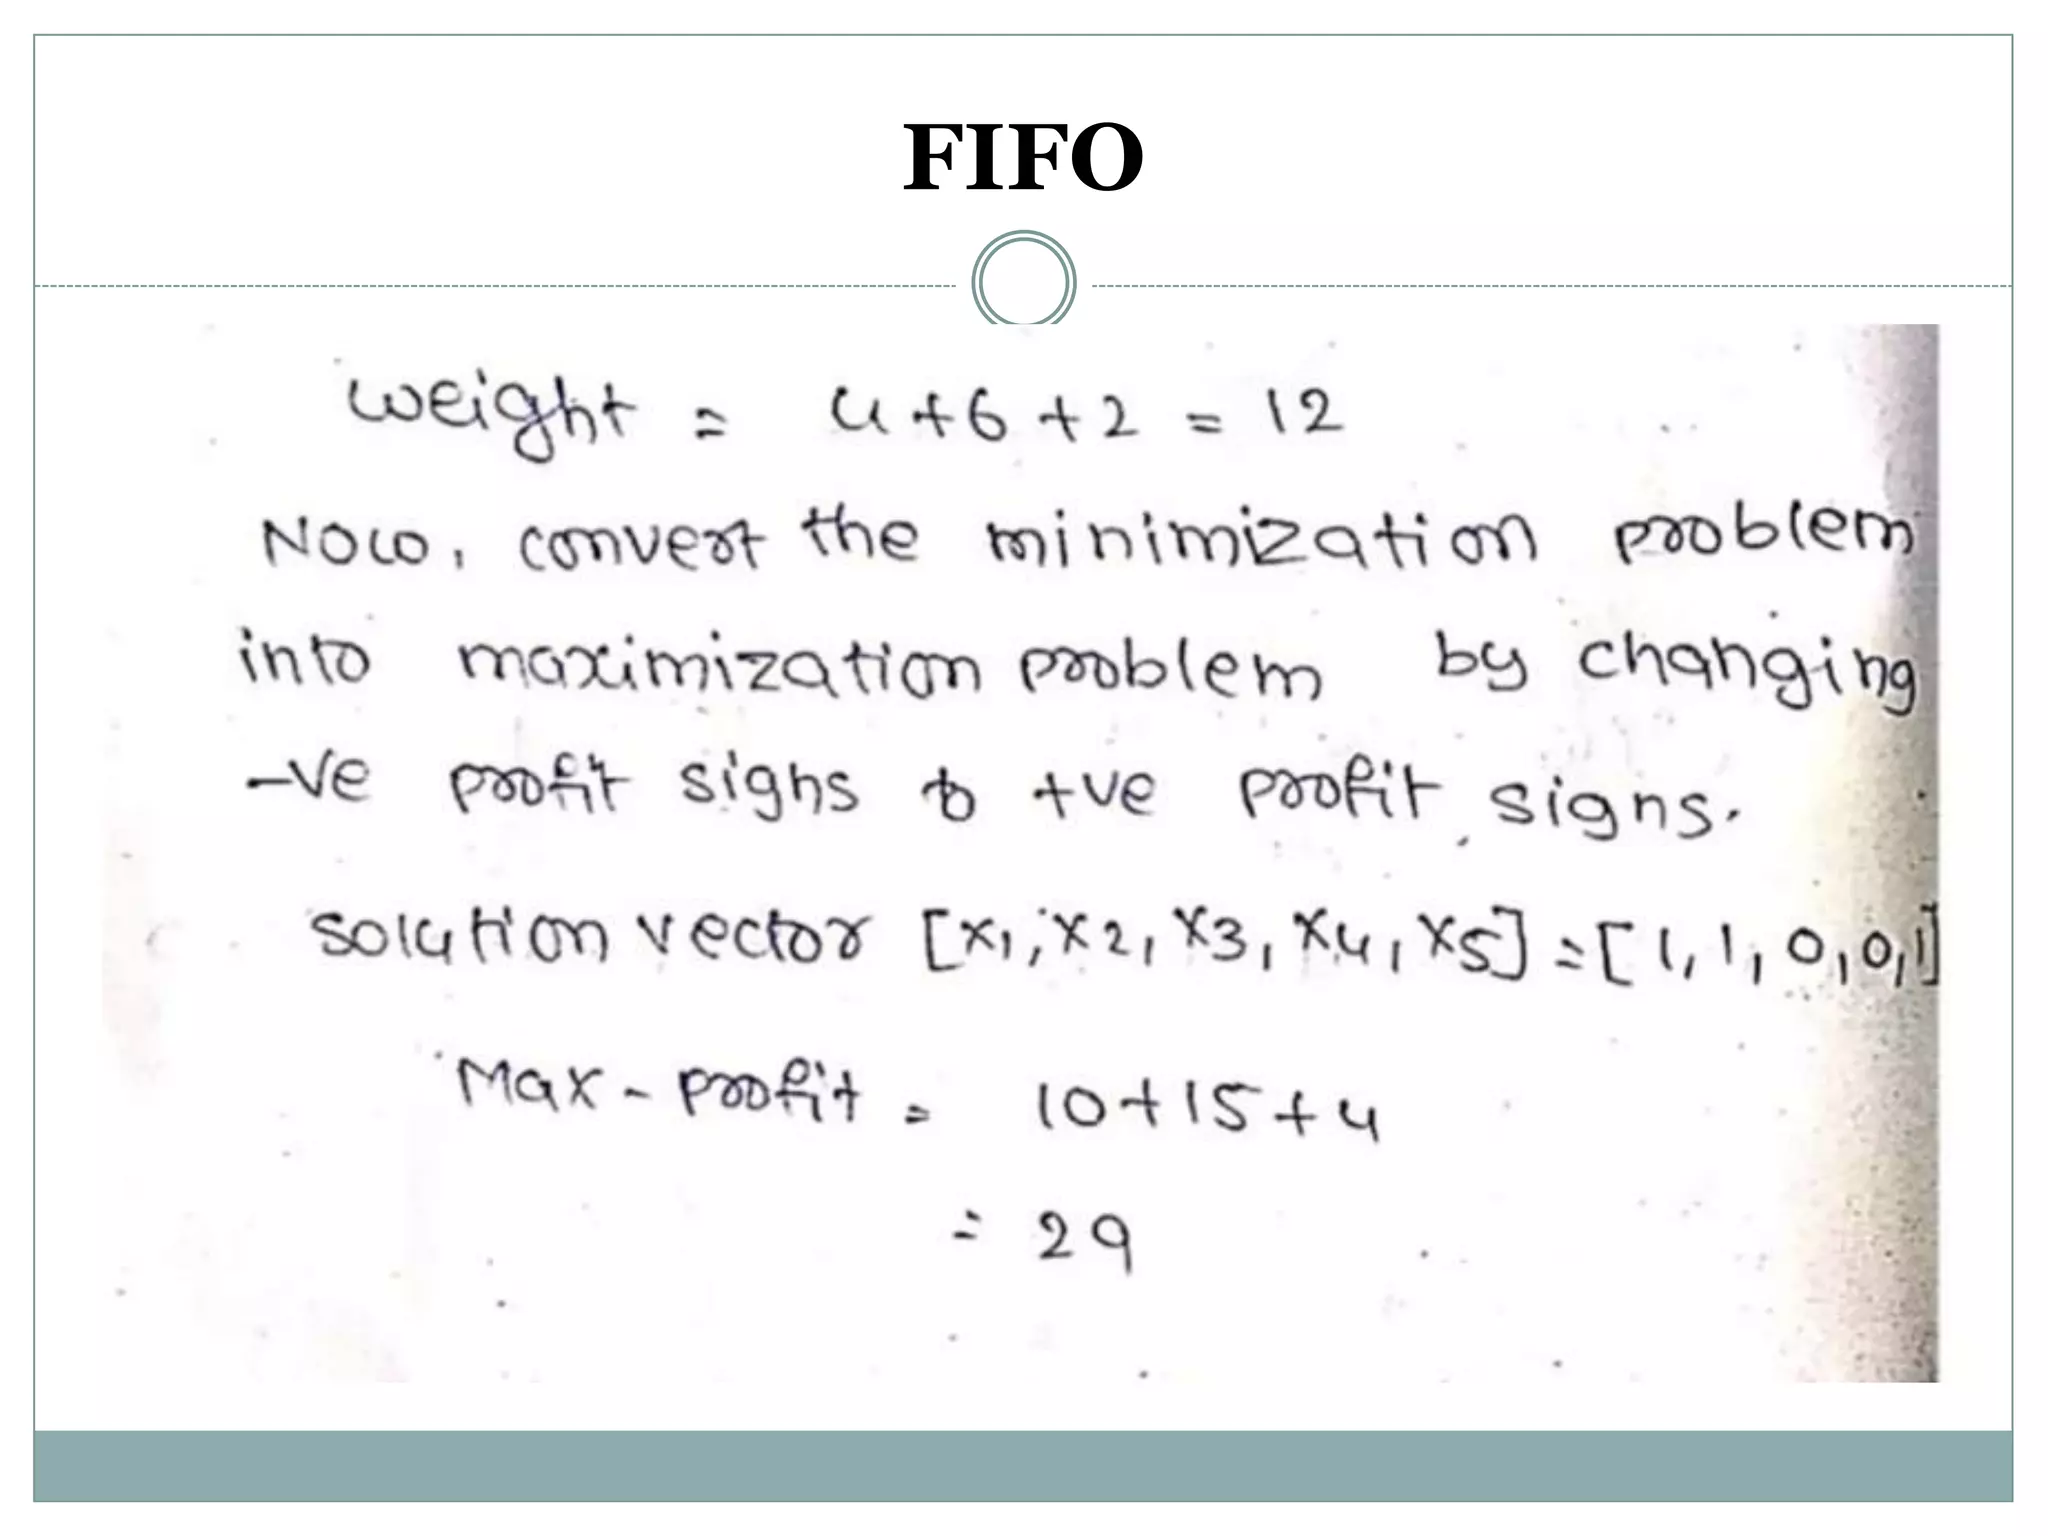 FIFO
weight = 4+6+2 = 12
Now, convert the minimization problem
into maximization problem by changing
-ve profit signs to +ve profit signs.
solution vector [x1, x2, x3, x4, x5] = [1, 1, 0, 0, 1]
Max-profit = 10+15+4
= 29